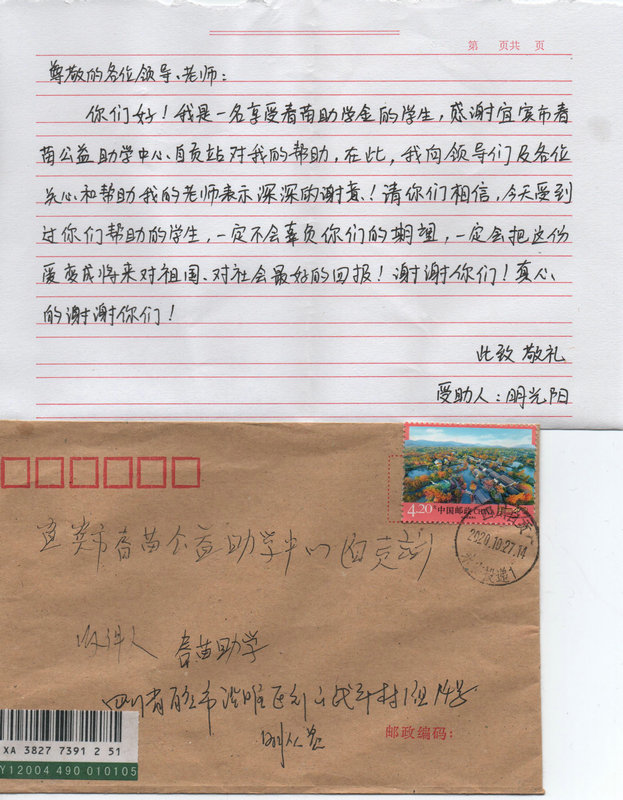 第 页共 页
尊敬的各位领导、老师:
你们好!我是一名享受春苗助学金的学生,感谢宜宾市春
苗公益助学中心、自贡站对我的帮助,在此,我向领导们及各位
关心和帮助我的老师表示深深的谢意!请你们相信,今天受到
过你们帮助的学生,一定不会辜负你们的期望,一定会把这份
爱变成将来对祖国、对社会最好的回报!谢谢你们!真心
的谢谢你们!
此致 敬礼
受助人:明光阳
4.20 中国邮政 CHINA
2020.10.27.14
宜宾市春苗公益助学中心(自贡站)
收件人 春苗助学
四川省自贡市沿滩区
邮政编码:
XA 3827 7391 2 51
Y12004 490 010105